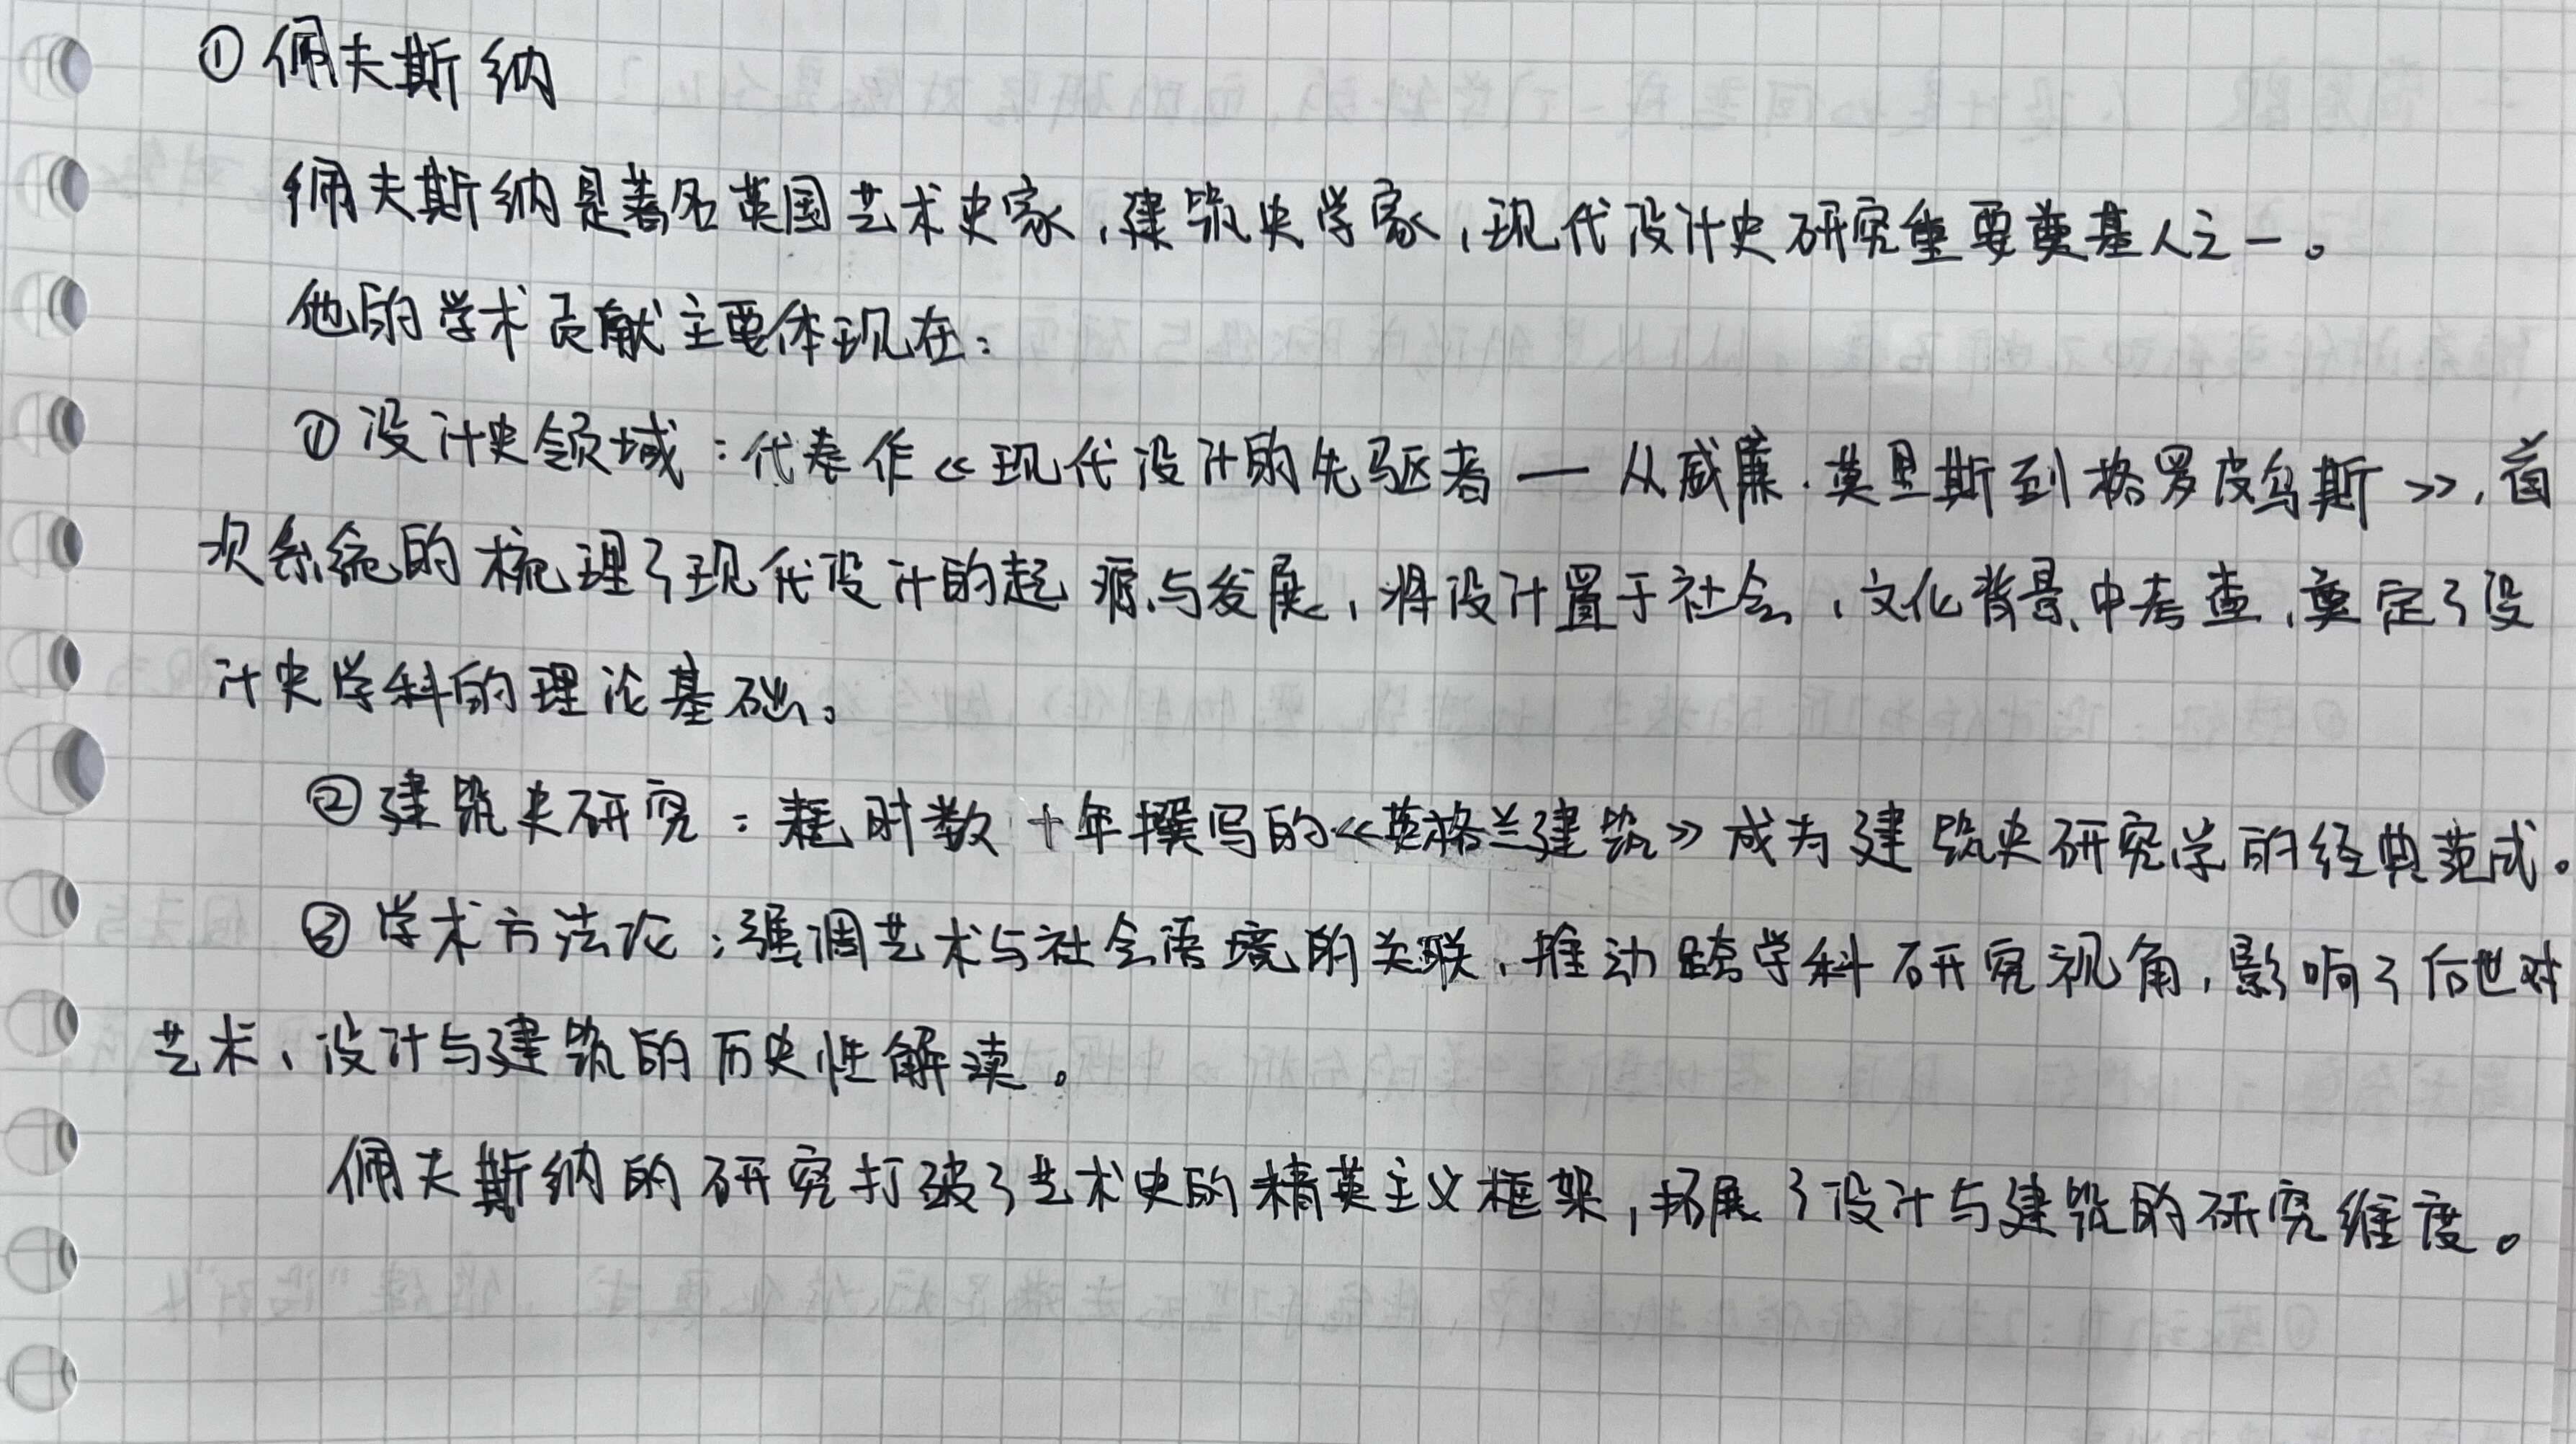 ① 佩夫斯纳
佩夫斯纳是著名英国艺术史家，建筑史学家，现代设计史研究重要奠基人之一。
他的学术贡献主要体现在：
① 设计史领域：代表作《现代设计的先驱者 — 从威廉·莫里斯到格罗皮乌斯》，首
次系统的梳理了现代设计的起源与发展，将设计置于社会，文化背景中考查，奠定了设
计史学科的理论基础。
② 建筑史研究：耗时数十年撰写的《英格兰建筑》成为建筑史研究学的经典范式。
③ 学术方法论：强调艺术与社会语境的关联，推动跨学科研究视角，影响了后世对
艺术、设计与建筑的历史性解读。
佩夫斯纳的研究打破了艺术史的精英主义框架，拓展了设计与建筑的研究维度。